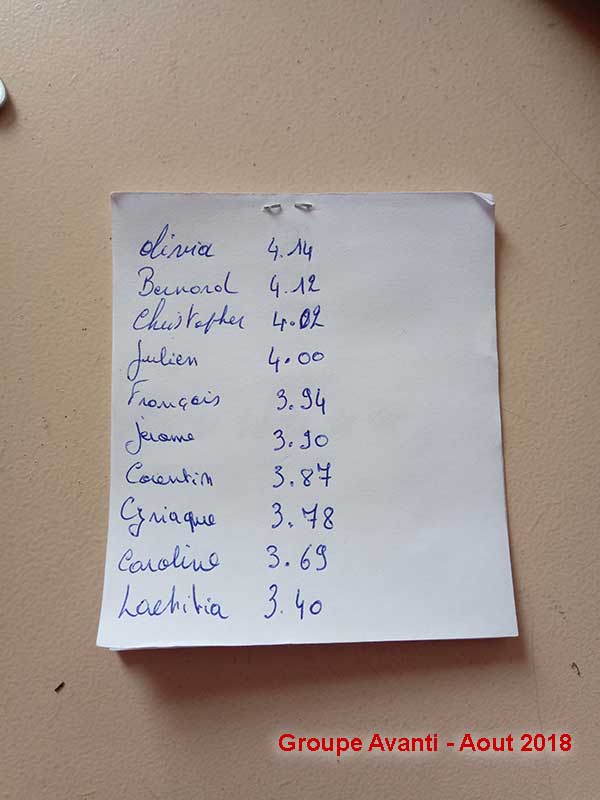 Olivia 4.14
Bernard 4.12
Christopher 4.02
Julien 4.00
François 3.94
Jerome 3.90
Corentin 3.87
Cyriaque 3.78
Caroline 3.69
Laetitia 3.40
Groupe Avanti - Aout 2018